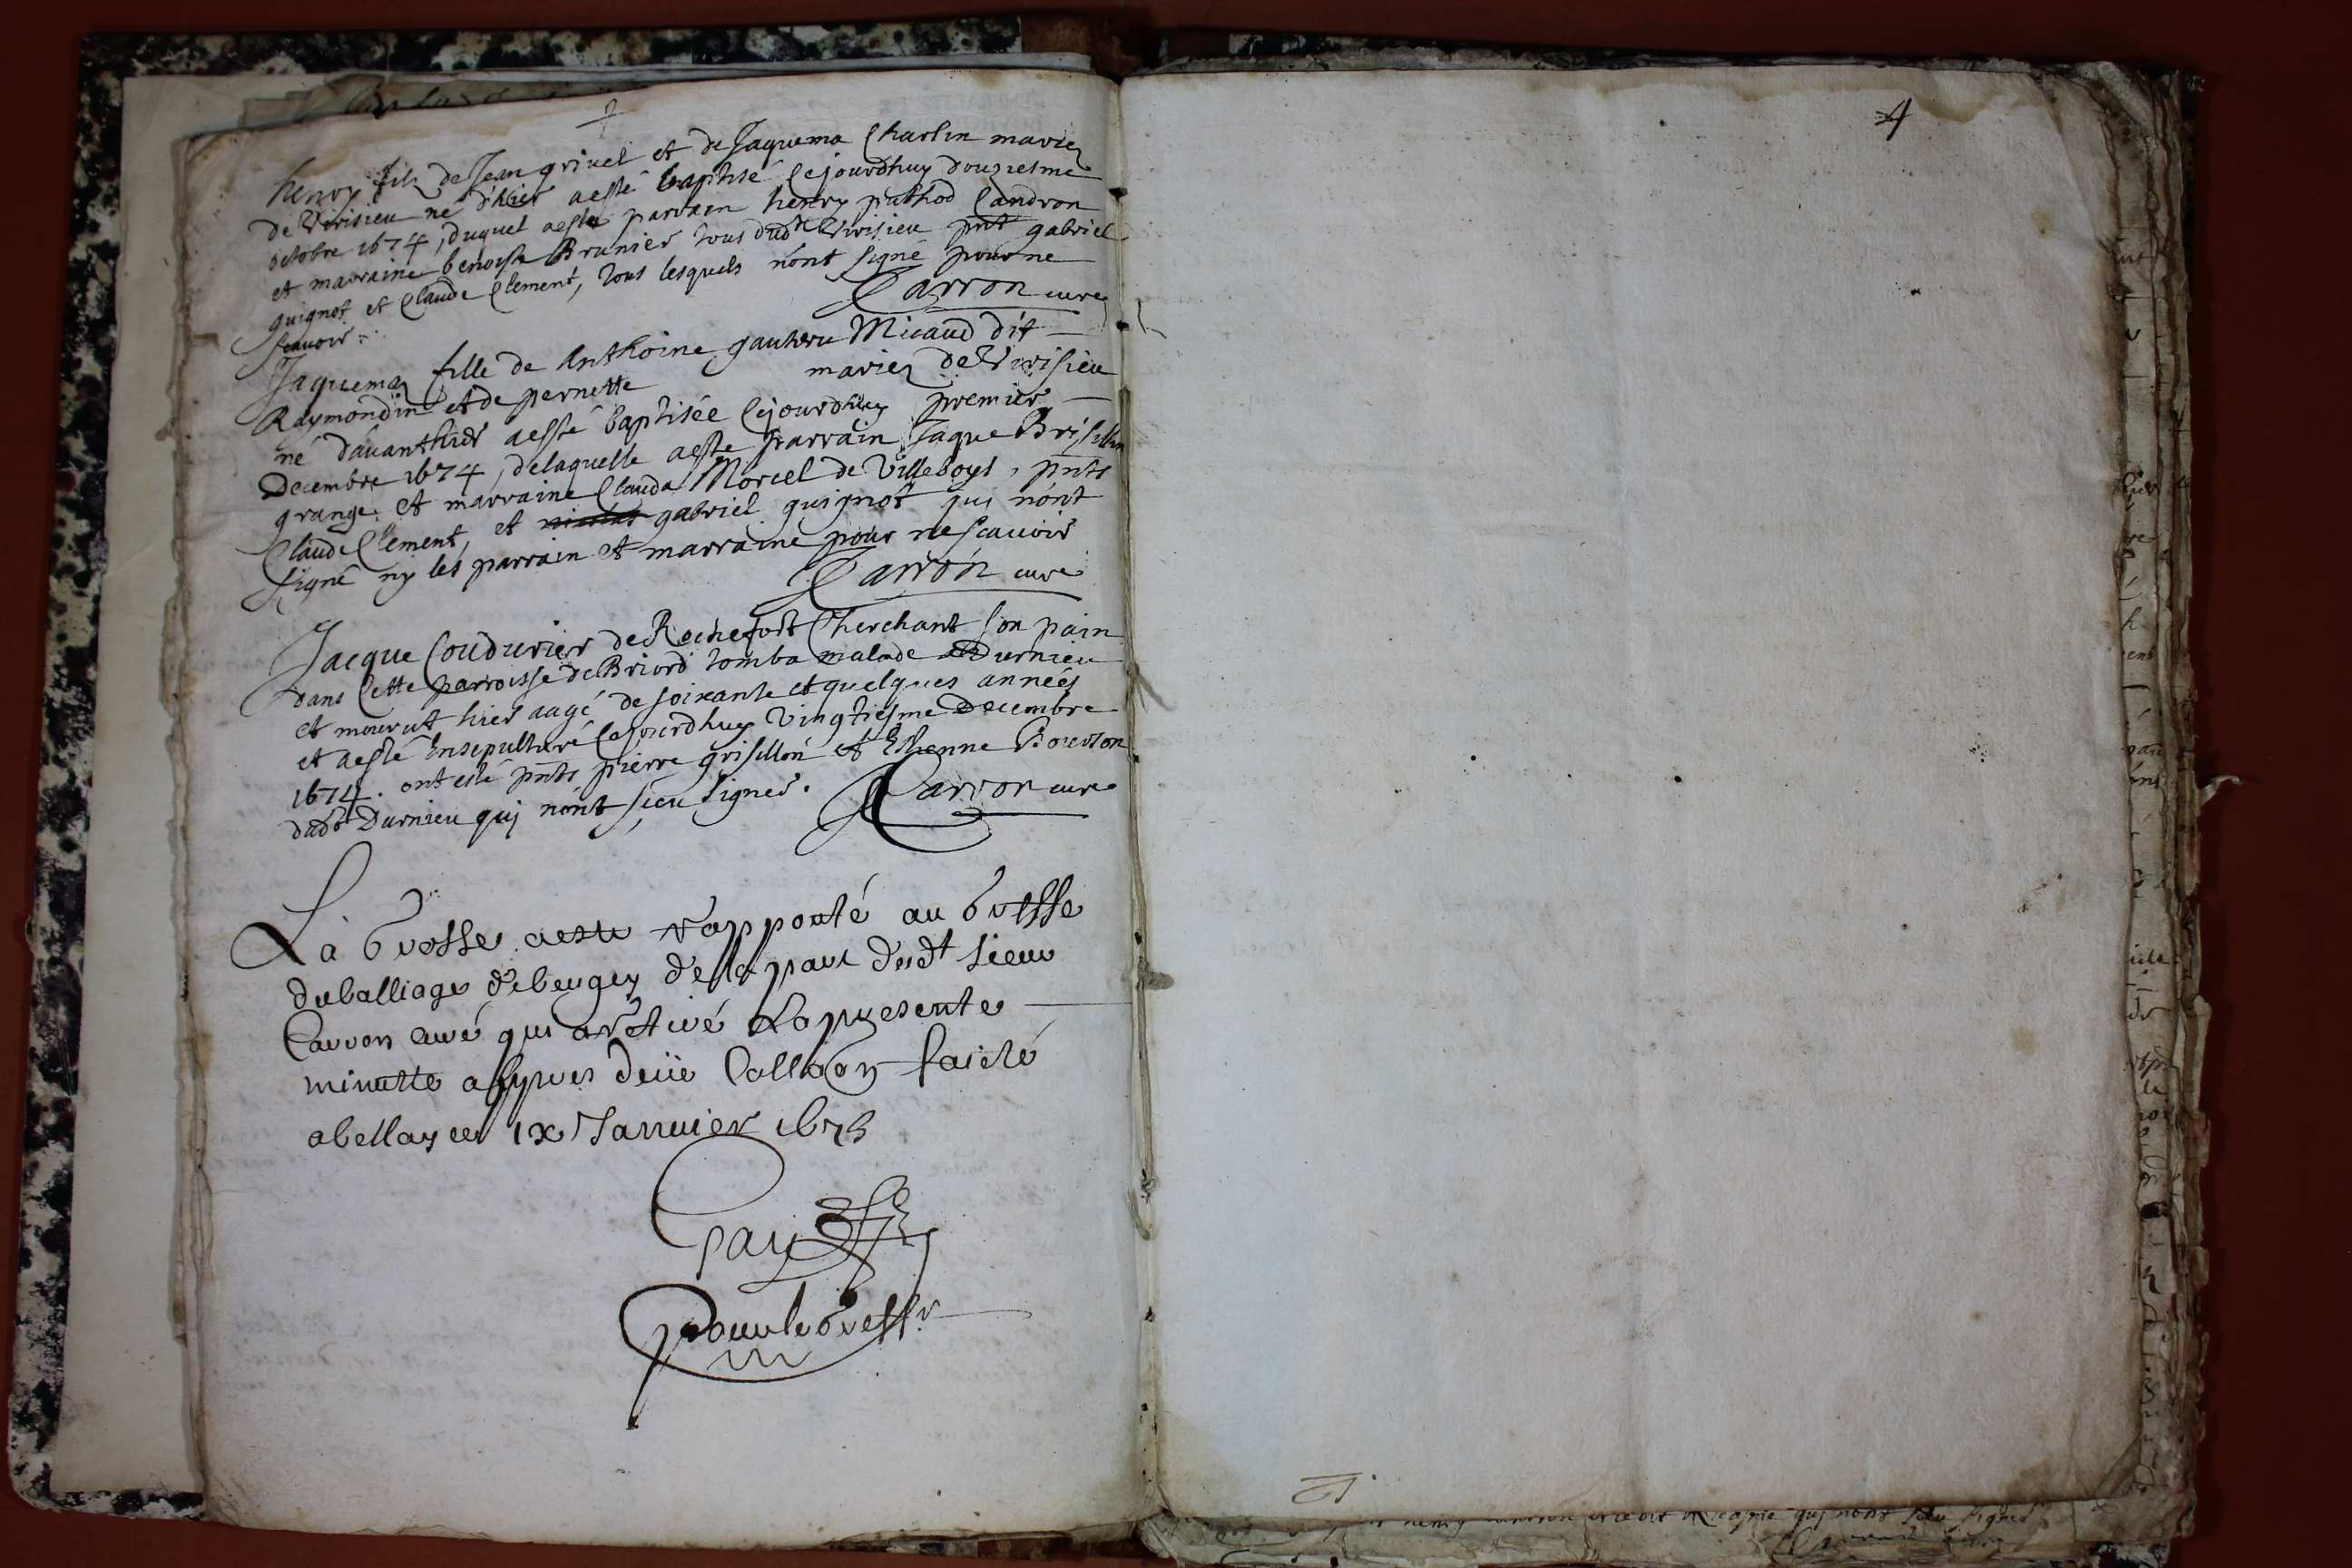 henry fils de Jean grivel et de Jaquema Charlin mariez
de Verisieu né d'hier a esté baptisé Cejourdhuy douziesme
octobre 1674, duquel a esté parrain henry pathod Candron
et marraine benoiste Brunier tous dudt Virisieu pnts gabriel
guignot et Claude Clement, tous lesquels nont signé pour ne
scavoir.
Carron curé
Jaquema fille de Anthoine gautheru Micaud dit
Raymondin et de pernette mariez de Virisieu
né davanthier a esté baptisée Cejourdhuy premier
Decembre 1674, de laquelle a este parrain Jaque Brisillon
grange et marraine Clauda Morcel de Villeboys, pnts
Claude Clement, et gabriel guignot qui nont
signé ny les parrain et marraine pour ne scavoir
Carron curé
Jacque Coudurier de Rochefort Cherchant son pain
dans Cette parroisse de Briord tomba malade a Durnieu
et mourut hier aagé de soixante et quelques années
et a esté Ensepulturé Cejourdhuy Vingtiesme Decembre
1674. ont esté pnts pierre grisillon et Estienne Bourron
dudt Durnieu qui nont sceu signer. Carron curé
La Grosse a esté rapporté au Greffe
du balliage de beugey de la part dudt sieur
Carron curé qui a retiré La presente
minutte appres deüe Collaon faicte
a bellay ce IX Janvier 1675
Gay
pour le Greffr
4